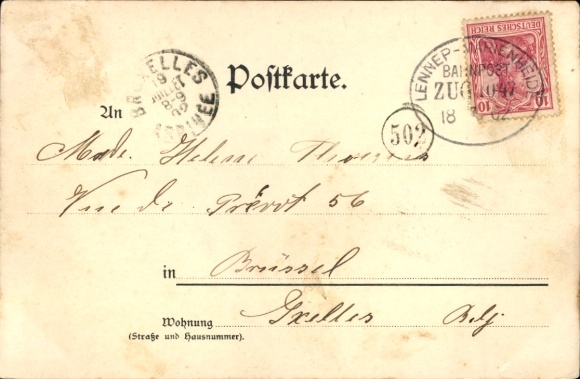 BRUXELLES
ARRIVEE
Postkarte.
DEUTSCHES REICH
10 10
LENNEP-MARIENHEIDE
BAHNPOST
ZUG 1047
18 02
502
An
Made. Helene
Prévot 56
in Brüssel
Wohnung Ixelles Belg
(Straße und Hausnummer).